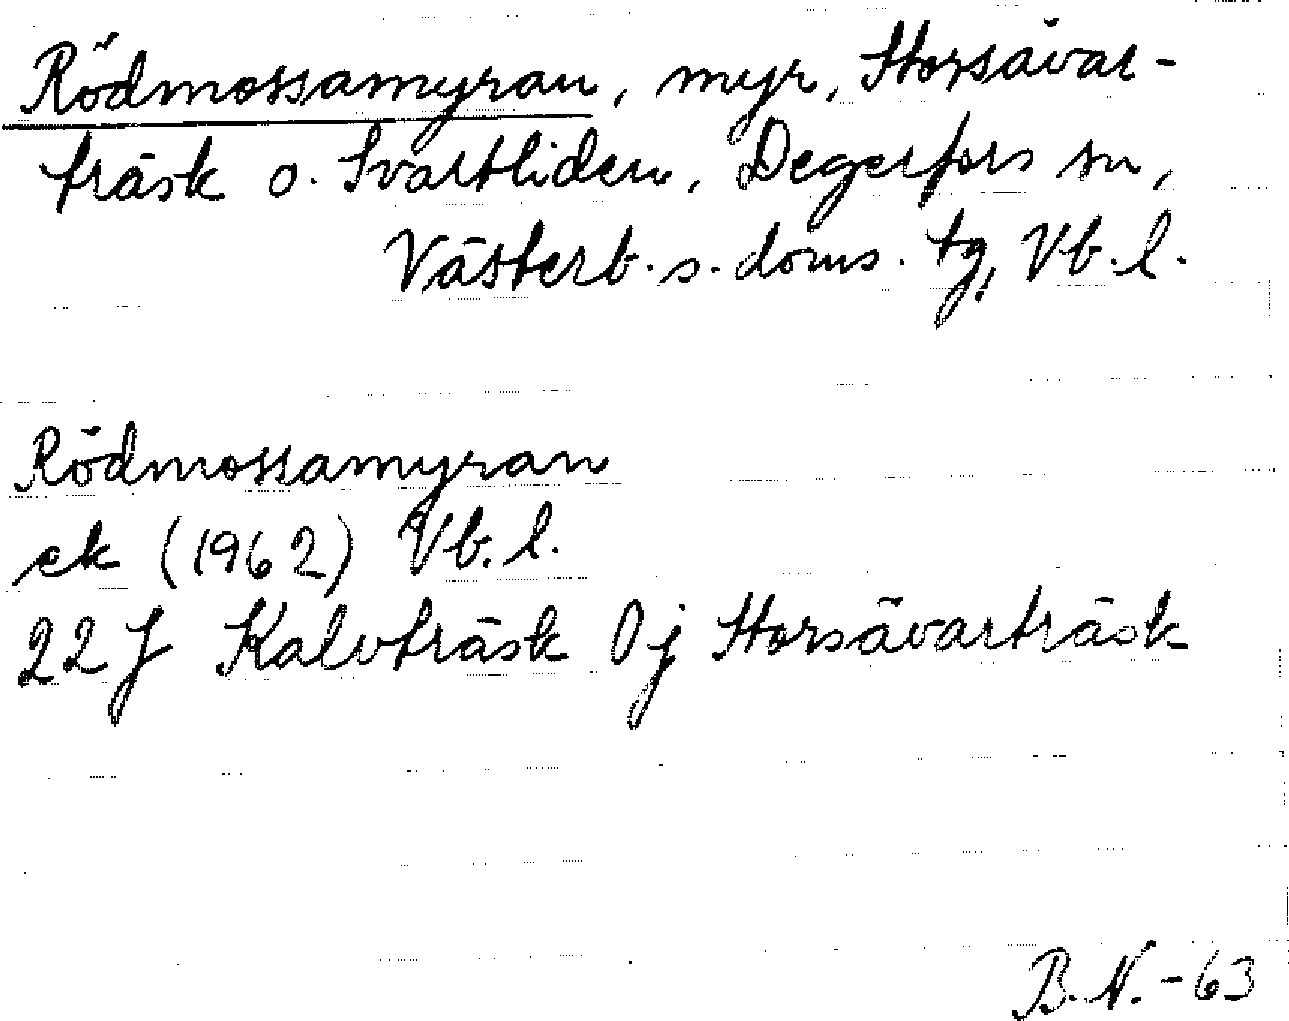 Rödmossamyran, myr, Storsävar-
träsk o. Svartliden, Degerfors sn,
Västerb. s. doms. tg, Vb. l.
Rödmossamyran
ek (1962) Vb. l.
22 J Kalvträsk 0j Storsävarträsk
B.N. -63